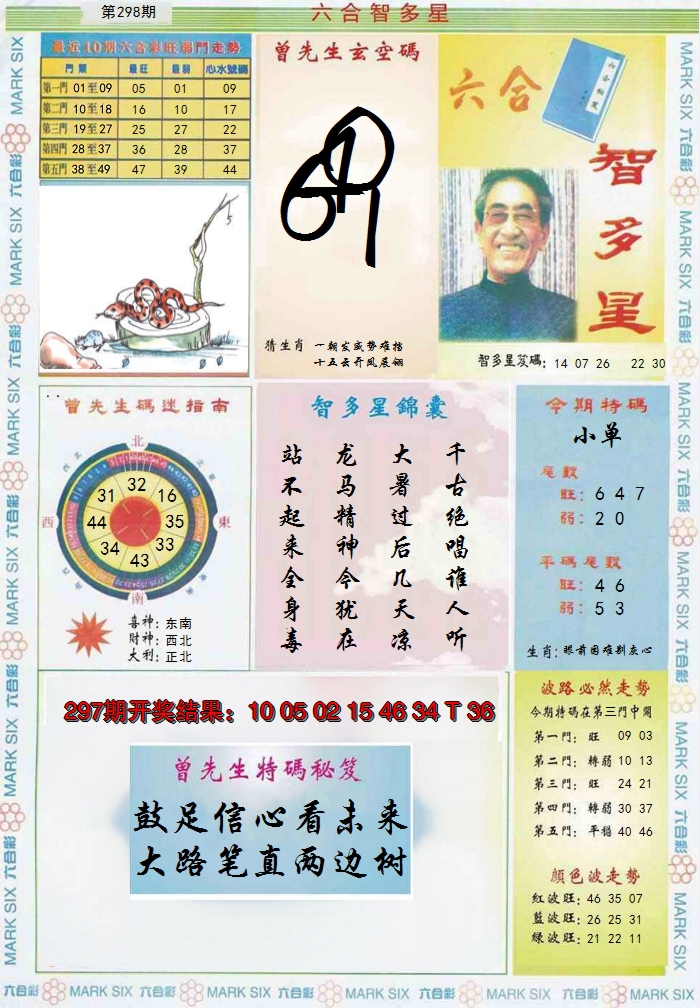 第298期
六合智多星
最近10期六合彩旺弱門走勢
門類 最旺 最弱 心水號碼
第一門 01至09 05 01 09
第二門 10至18 16 10 17
第三門 19至27 25 27 22
第四門 28至37 36 28 37
第五門 38至49 47 39 44
曾先生玄空碼
猜生肖 一朝发威势难挡
十五云开风展翎
六合
智多星
智多星笈碼: 14 07 26 22 30
曾先生碼迷指南
北
西北
東北
32
31 16
西 44 35 東
34 33
43
南
喜神: 东南
財神: 西北
大利: 正北
智多星錦囊
千古绝唱谁人听
大暑过后几天凉
龙马精神今犹在
站不起来全身毒
今期特碼
小单
尾数
旺: 6 4 7
弱: 2 0
平碼尾数
旺: 4 6
弱: 5 3
生肖: 眼前困难别灰心
297期开奖结果: 10 05 02 15 46 34 T 36
曾先生特碼秘笈
鼓足信心看未来
大路笔直两边树
波路必然走勢
今期特碼在第三門中開
第一門: 旺 09 03
第二門: 轉弱 10 13
第三門: 旺 24 21
第四門: 轉弱 30 37
第五門: 平穩 40 46
顏色波走勢
紅波旺: 46 35 07
藍波旺: 26 25 31
綠波旺: 21 22 11
MARK SIX 六合彩